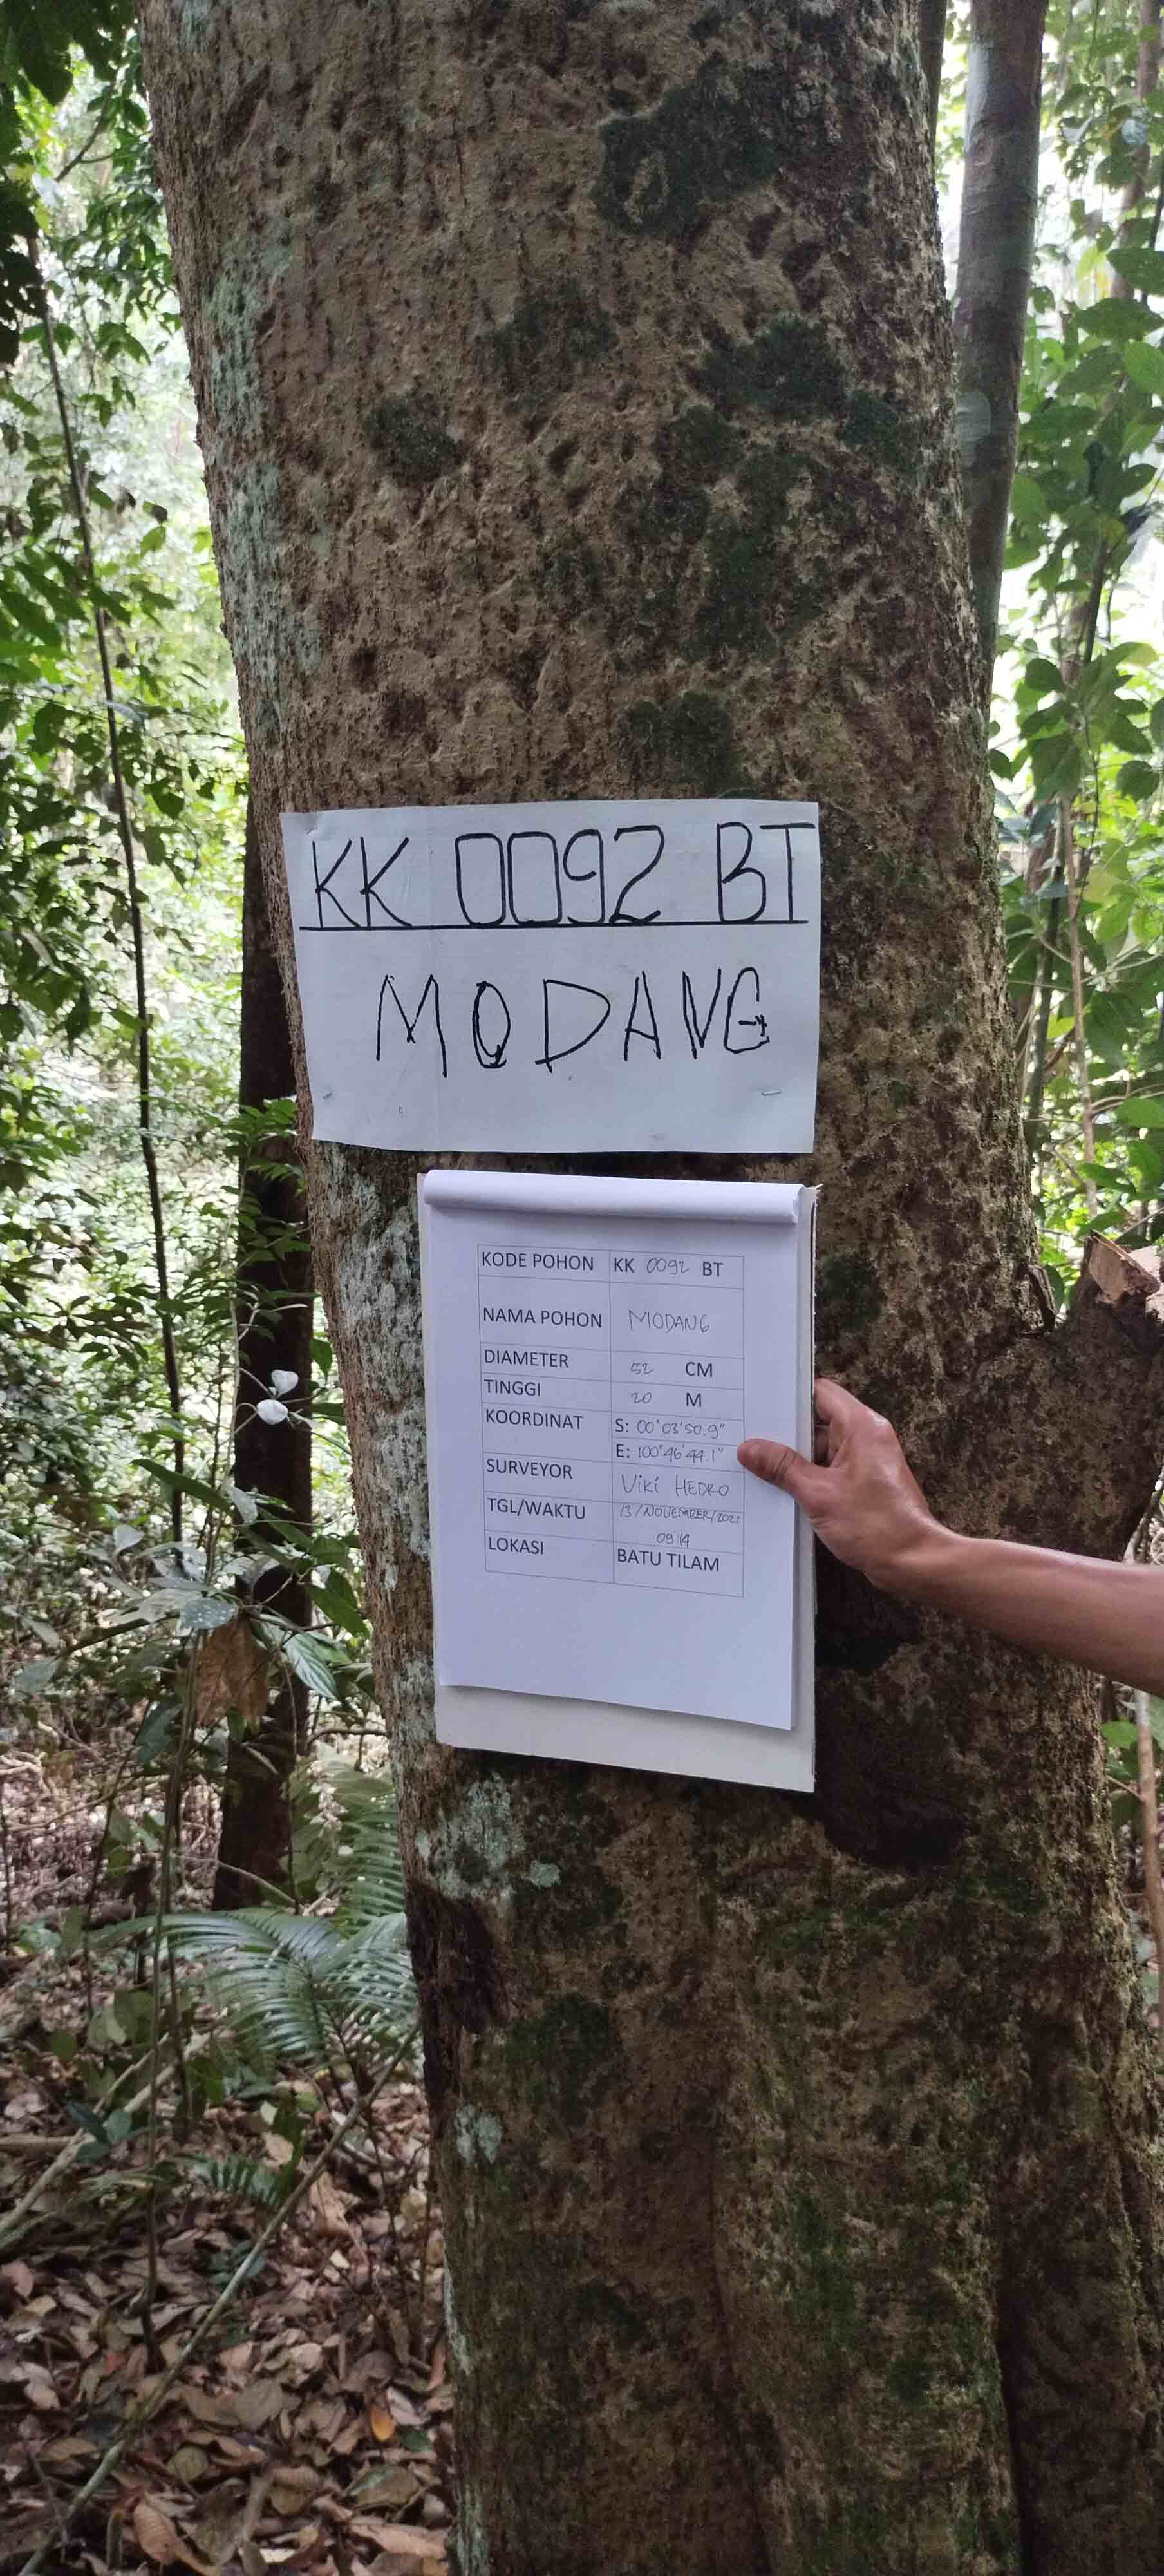 KK 0092 BT
MODANG
KODE POHON KK 0092 BT
NAMA POHON MODANG
DIAMETER 52 CM
TINGGI 20 M
KOORDINAT S: 00°03'50.9"
E: 100°46'44.1"
SURVEYOR Viki HEDRO
TGL/WAKTU 13/NOVEMBER/
09:14
LOKASI BATU TILAM